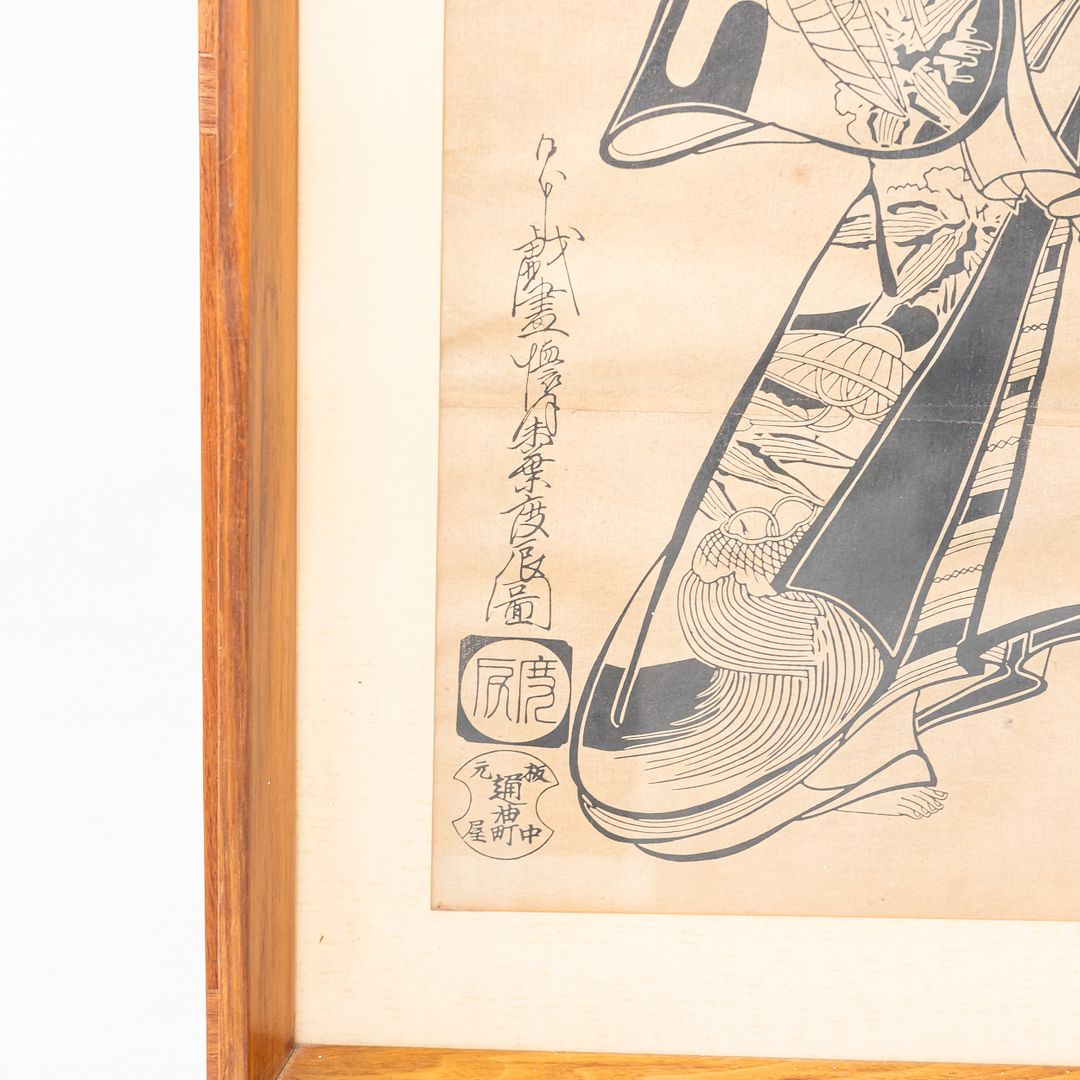 日本戯畫懐月末葉度辰圖
度辰
板元
通油町
中屋